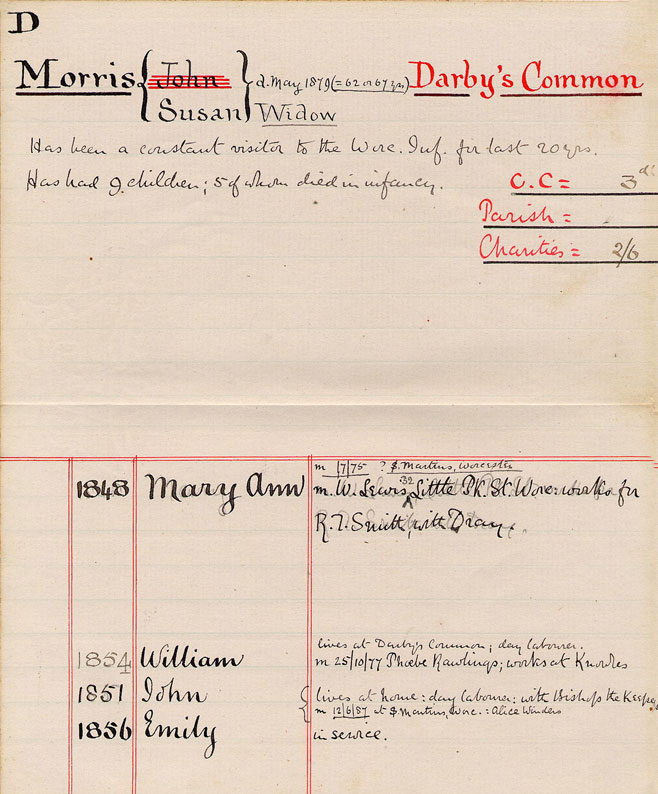 D
Morris { John } d. May 1879 (= 62 or 67 yrs) Darby's Common
Susan Widow
Has been a constant visitor to the Worc. Inf. for last 20 yrs.
Has had 9 children; 5 of whom died in infancy.
C.C = 3d.
Parish =
Charities = 2/6
m 1/7/75 ? S. Martins, Worcester
1848 Mary Ann m. W. Lewis, 32 Little Pk. St. Worc: works for
R. T. Smith, with Dray.
lives at Darby's Common; day labourer.
1854 William m 25/10/77 Phœbe Rawlings; works at Knowles
1851 John lives at home: day labourer: with Bishop the Keeper
m 12/6/87 at S. Martins, Worc.: Alice Winders
1856 Emily in service.